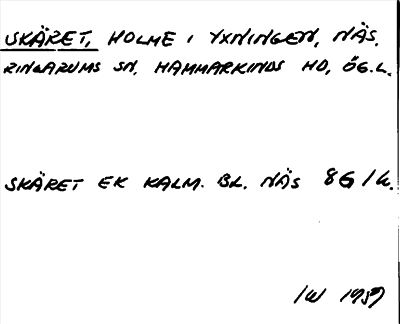 SKÄRET, HOLME I YXNINGEN, NÄS.
RINGARUMS SN, HAMMARKINDS HD, ÖG.L.
SKÄRET EK KALM. BL. NÄS 8G/k.
IW 1959